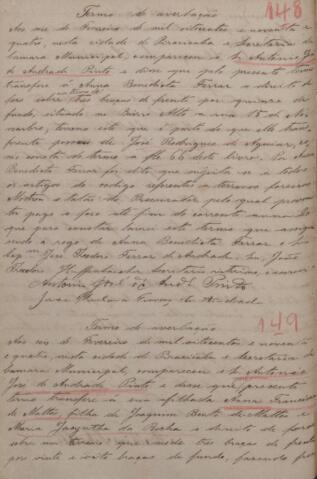 148
Termo de averbação
Aos seis de Fevereiro de mil oitocentos e noventa e
quatro, nesta cidade de Piracicaba e Secretaria da
Camara Municipal, compareceu o Sr. Antonio José
de Andrade Pinto e disse que pelo presente termo
transfere a Anna Benedicta Ferraz o direito de
fóro sobre braças de frente por quinze de
fundo, situado no Bairro Alto a rua 15 de No-
vembro, terreno este que é parte do que elle
frente para de José Rodrigues de Aguiar,
termo a fls 66 deste livro. Por Anna
Benedicta Ferraz foi dito que sujeita se a todos
os artigos do codigo referentes a terrenos foreiros
o talão do Procurador pelo qual provou
ter pago o foro até fim do corrente anno. Do
que para constar lavrei este termo que assigna
a rogo de Anna Benedicta Ferraz o
José Ferraz de Andrade. Eu, João
Secretario interino, o escrevi
Antonio José de Andr. Pinto
149
Termo de averbação
Aos seis de Fevereiro de mil oitocentos e noventa
e quatro, nesta cidade de Piracicaba e Secretaria da
Camara Municipal, compareceu o Sr. Antonio
José de Andrade Pinto e disse que presente
termo transfere a sua afilhada Anna Francisca
de Mattos, filha de Joaquim Bento de Mattos e
Maria Jacyntha da Rocha o direito de foro
sobre um terreno que mede tres braças de frente
por vinte e oito braças de fundo, fazendo